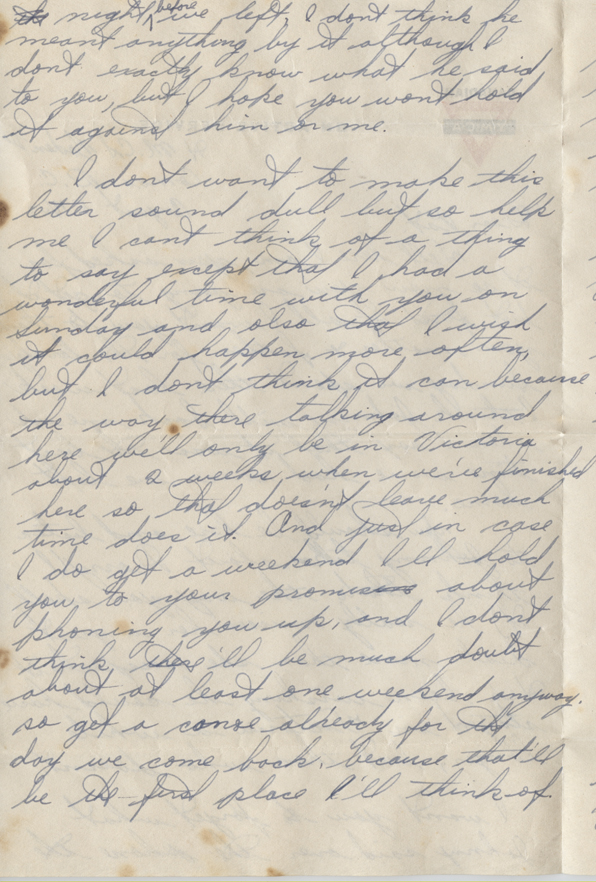 the night before we left, I don't think he
meant anything by it although I
dont exactly know what he said
to you, but I hope you wont hold
it against him or me.
I don't want to make this
letter sound dull but so help
me I cant think of a thing
to say except that I had a
wonderful time with you on
Sunday and also that I wish
it could happen more often,
but I don't think it can because
the way there talking around
here we'll only be in Victoria
about 2 weeks, when we've finished
here so that doesn't leave much
time does it. And just in case
I do get a weekend I'll hold
you to your promise about
phoning you up, and I don't
think there'll be much doubt
about at least one weekend anyway.
so get a canoe already for the
day we come back, because that'll
be the first place I'll think of